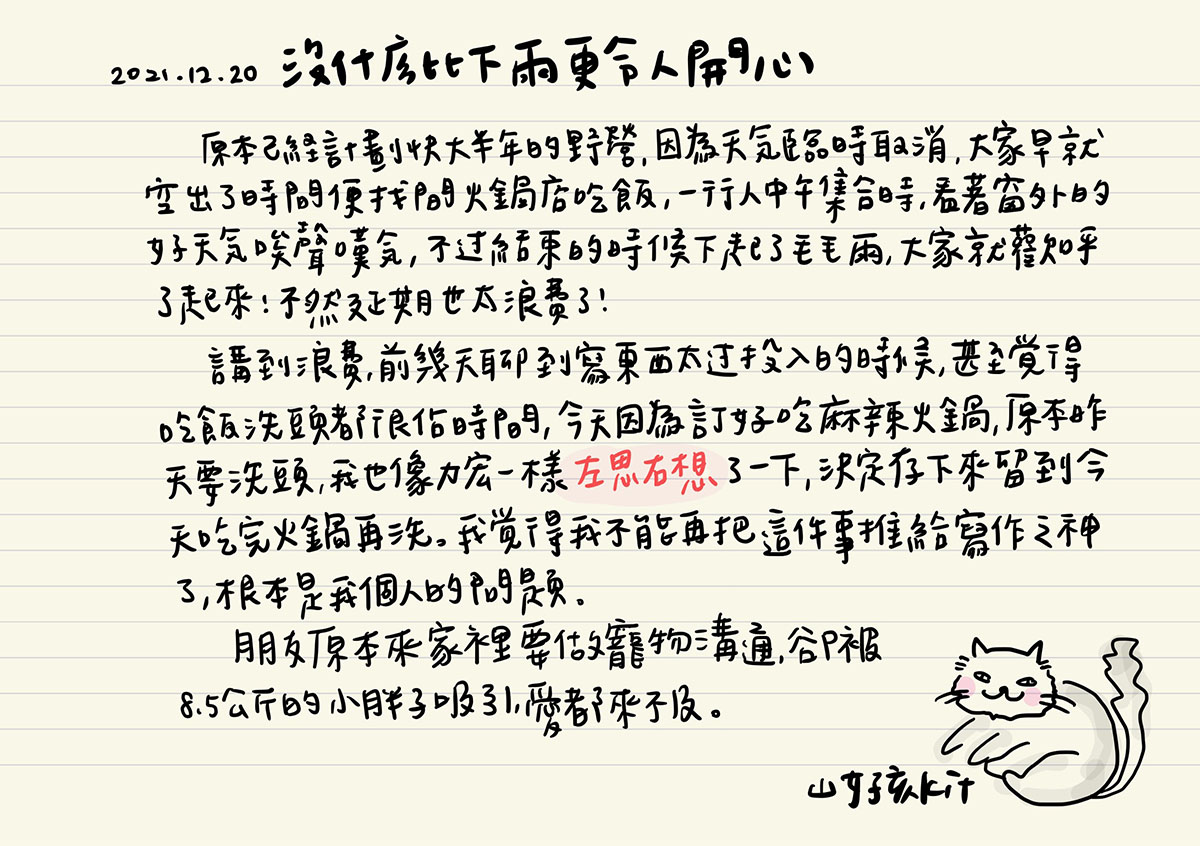 2021.12.20 沒什麼比下雨更令人開心
原本已経計劃快大半年的野營，因為天気臨時取消，大家早就
空出了時間便找間火鍋店吃飯，一行人中午集合時，看著窗外的
好天気唉聲嘆気，不过結束的時候下起了毛毛雨，大家就歡呼
了起來！不然延期也太浪費了！
講到浪費，前幾天聊到寫東西太过投入的時候，甚至覚得
吃飯洗頭都很佔時間，今天因為訂好吃麻辣火鍋，原本昨
天要洗頭，我也像力宏一樣左思右想了一下，決定存下來留到今
天吃完火鍋再洗。我覚得我不能再把這件事推給寫作之神
了，根本是我個人的問題。
朋友原本來家裡要做寵物溝通，卻被
8.5公斤的小胖子吸引，愛都來不及。
山女孩kit